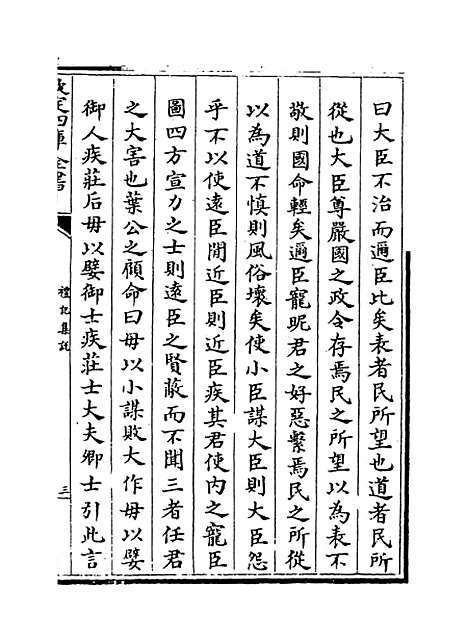 曰大臣不治而邇臣比矣表者民所望也道者民所
從也大臣尊嚴國之政令存焉民之所望以為表不
敬則國命輕矣邇臣寵昵君之好惡繫焉民之所從
以為道不慎則風俗壞矣使小臣謀大臣則大臣怨
乎不以使遠臣閒近臣則近臣疾其君使内之寵臣
圖四方宣力之士則遠臣之賢蔽而不聞三者任君
之大害也葉公之顧命曰毋以小謀敗大作毋以嬖
御人疾莊后毋以嬖御士疾莊士大夫卿士引此言
欽定四庫全書
禮記集説
三